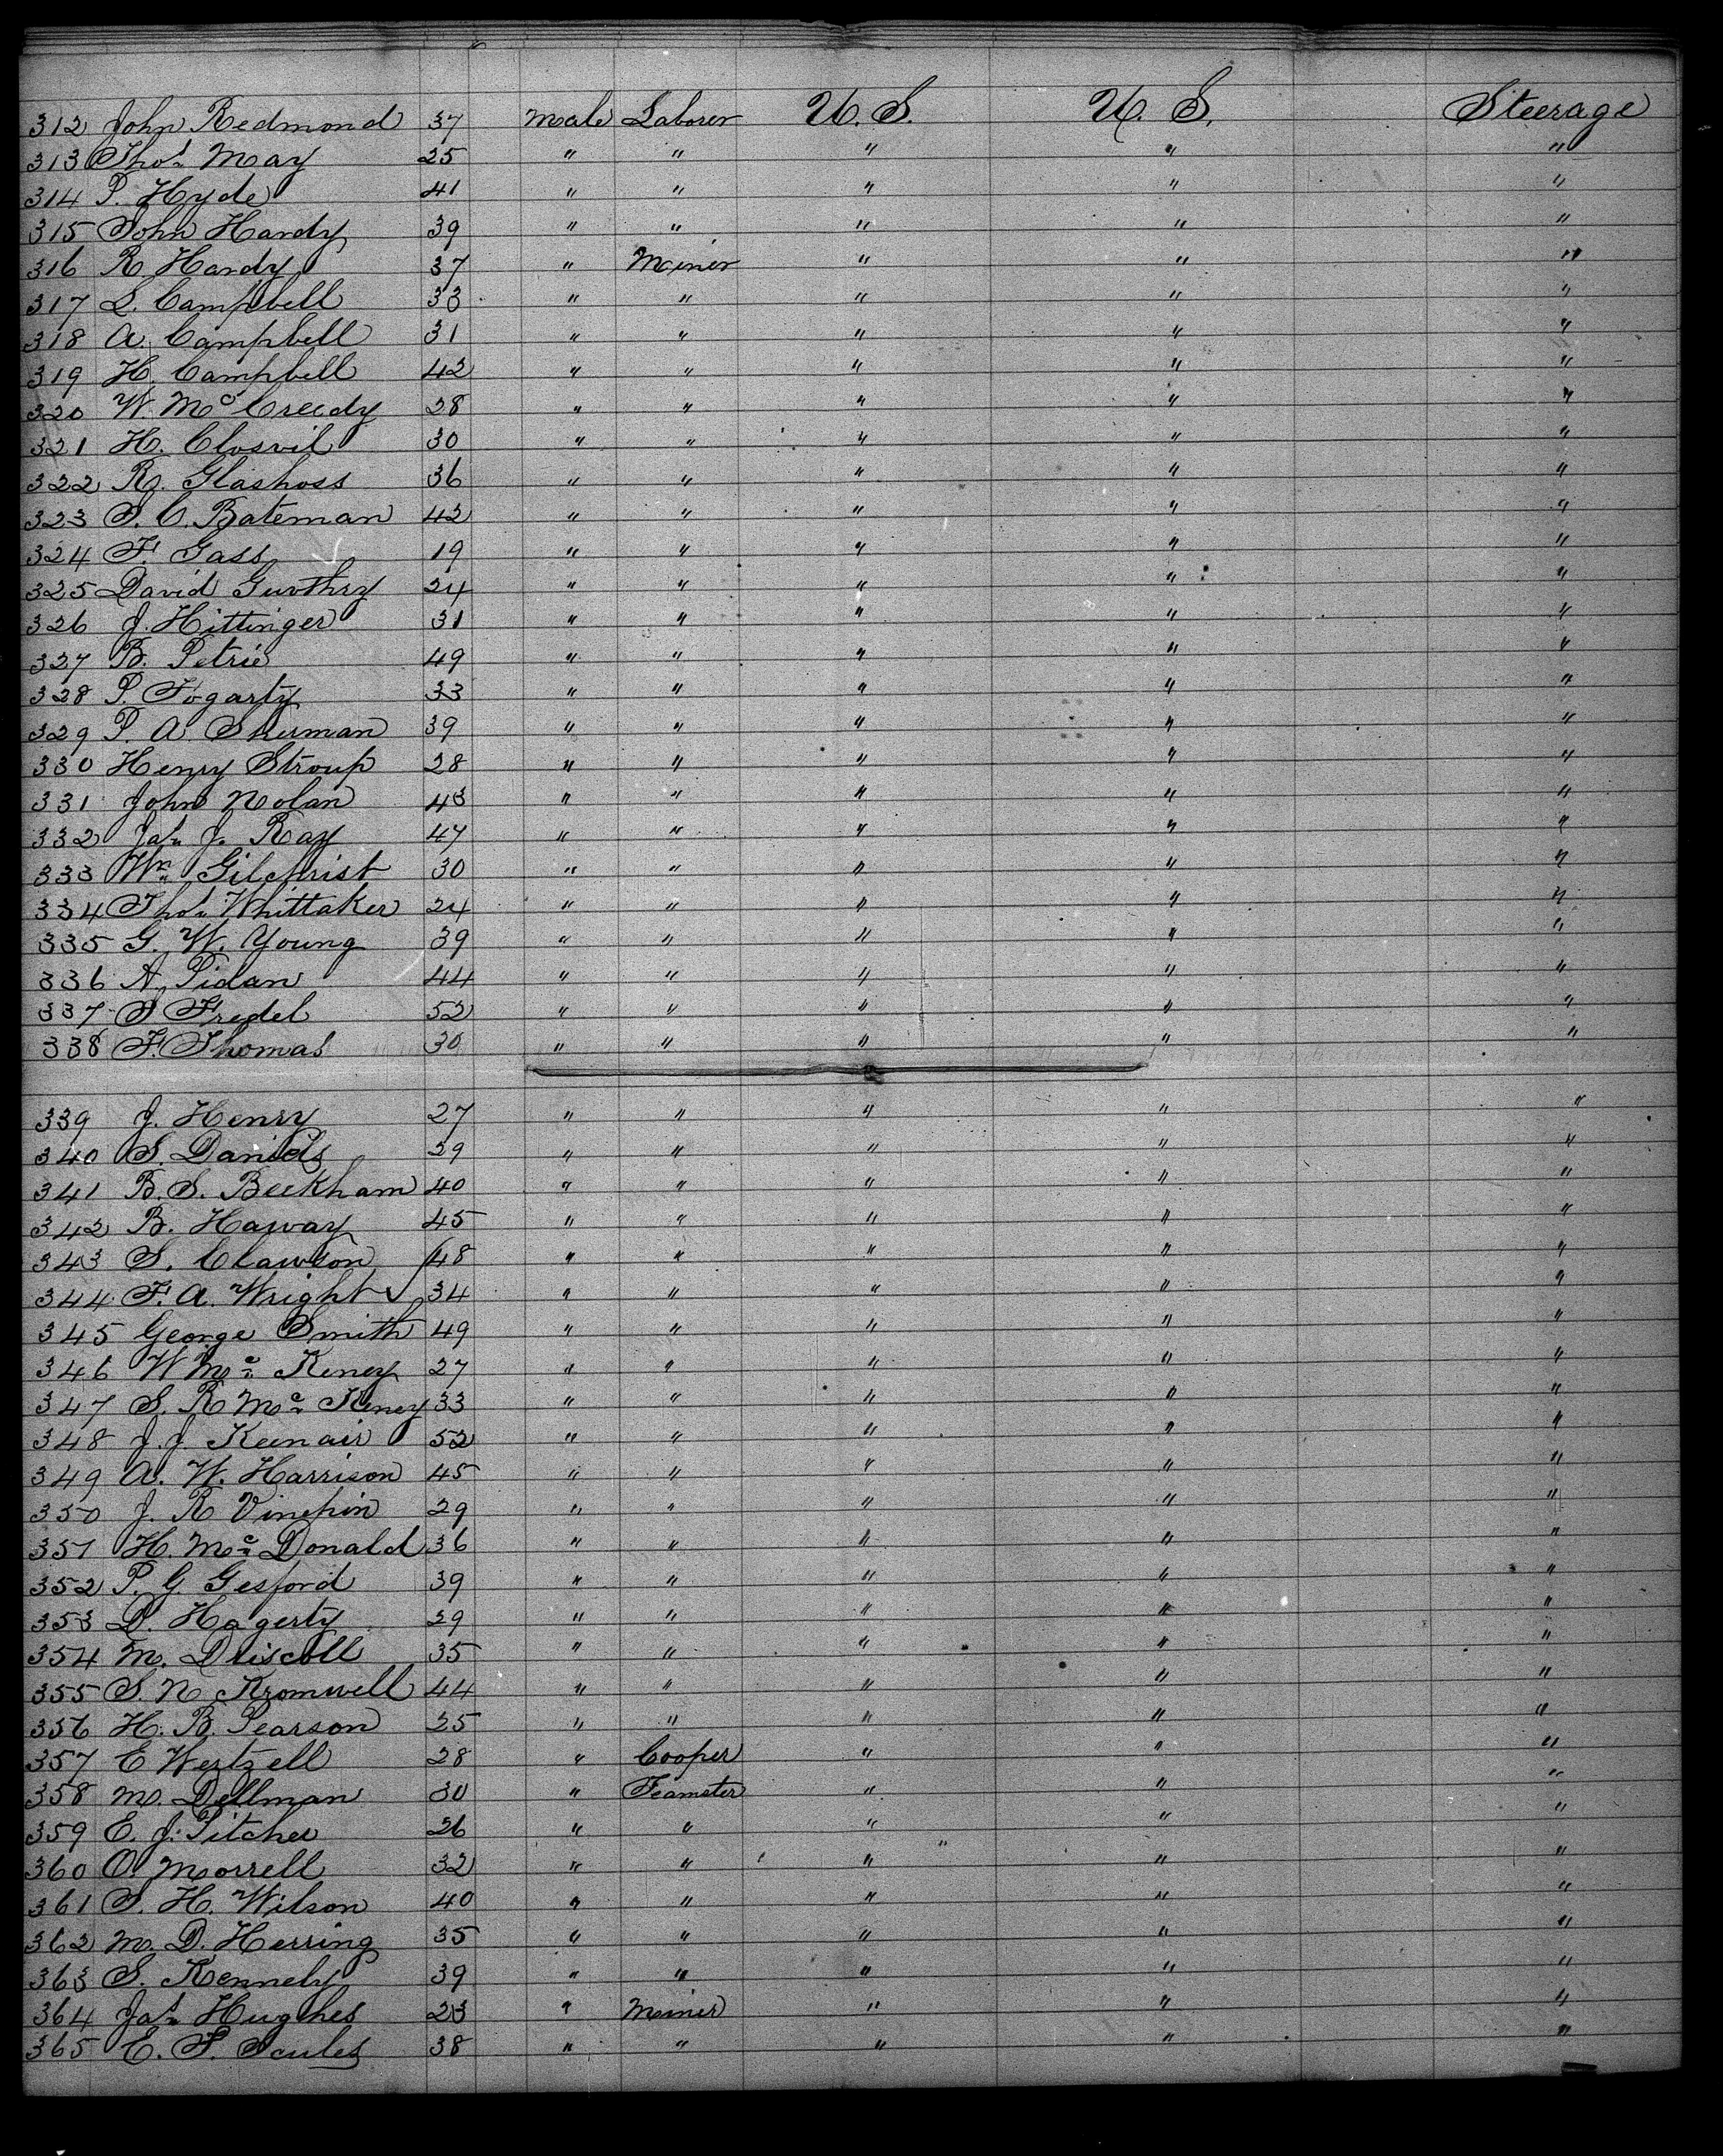 312 John Redmond 37 Male Laborer U.S. U.S. Steerage
313 Thos May 25 " " " " "
314 P. Hyde 41 " " " " "
315 John Hardy 39 " " " " "
316 R. Hardy 37 " Miner " " "
317 L. Campbell 33 " " " " "
318 A. Campbell 31 " " " " "
319 H. Campbell 42 " " " " "
320 W. McCreedy 28 " " " " "
321 H. Closvil 30 " " " " "
322 R. Glashoss 36 " " " " "
323 S. C. Bateman 42 " " " " "
324 F. Gass 19 " " " " "
325 David Guvthry 24 " " " " "
326 J. Hittinger 31 " " " " "
327 B. Petrie 49 " " " " "
328 P. Fogarty 33 " " " " "
329 P. A. Sherman 39 " " " " "
330 Henry Stroup 28 " " " " "
331 John Nolan 43 " " " " "
332 Jas J. Ray 47 " " " " "
333 Wm Gilchrist 30 " " " " "
334 Thos Whittaker 24 " " " " "
335 G. W. Young 39 " " " " "
336 A. Pidan 44 " " " " "
337 S Fredel 52 " " " " "
338 F. Thomas 30 " " " " "
339 J. Henry 27 " " " " "
340 S. Daniels 29 " " " " "
341 B. S. Beckham 40 " " " " "
342 B. Haway 45 " " " " "
343 S. Clawson 48 " " " " "
344 F. A. Wright 34 " " " " "
345 George Smith 49 " " " " "
346 W Mc Keney 27 " " " " "
347 S. R Mc Keney 33 " " " " "
348 J. J. Keenair 52 " " " " "
349 A. W. Harrison 45 " " " " "
350 J. R Vinepin 29 " " " " "
351 H. Mc Donald 36 " " " " "
352 P. G Gesford 39 " " " " "
353 D. Hagerty 29 " " " " "
354 M. Driscoll 35 " " " " "
355 S. N Kromwell 44 " " " " "
356 H. B. Pearson 25 " " " " "
357 E Wertzell 28 " Cooper " " "
358 M. Dellman 30 " Teamster " " "
359 E. J. Pitcher 26 " " " " "
360 O. Morrell 32 " " " " "
361 S. H. Wilson 40 " " " " "
362 M. D. Herring 35 " " " " "
363 S. Kennely 39 " " " " "
364 Jas Hughes 23 " Miner " " "
365 E. S. Scules 38 " " " " "